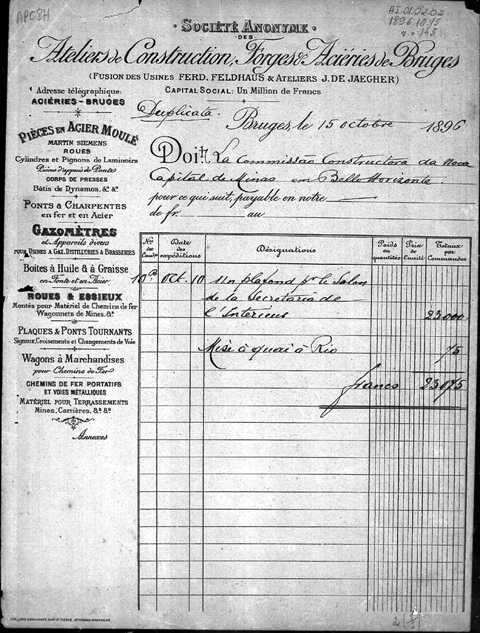 APCBH
AI.01.02.02
1896.10.15
Société Anonyme
DES
Ateliers de Construction, Forges & Aciéries de Bruges
(FUSION DES USINES FERD. FELDHAUS & ATELIERS J. DE JAEGHER)
CAPITAL SOCIAL: UN MILLION DE FRANCS
Adresse télégraphique:
ACIÉRIES-BRUGES
Duplicata.
Bruges, le 15 octobre 1896
Doit La Commissão Constructora da Nova
Capital de Minas en Bello Horizonte
pour ce que suit, payable en notre
de fr. au
PIÈCES EN ACIER MOULÉ
MARTIN SIEMENS
ROUES
Cylindres et Pignons de Laminoirs
Pièces d'appui de Ponts
CORPS DE PRESSES
Bâtis de Dynamos, &ª &ª
PONTS & CHARPENTES
en fer et en Acier
GAZOMÈTRES
et Appareils divers
POUR USINES A GAZ, DISTILLERIES & BRASSERIES
Boîtes à Huile & à Graisse
en Fonte et en Acier
ROUES & ESSIEUX
Montés pour Matériel de Chemins de fer
Wagonnets de Mines, &ª
PLAQUES & PONTS TOURNANTS
Signaux, Croisements et Changements de Voie
Wagons à Marchandises
pour Chemins de Fer
CHEMINS DE FER PORTATIFS
ET VOIES MÉTALLIQUES
MATÉRIEL POUR TERRASSEMENTS
Mines, Carrières, &ª &ª
Annexes
Nº de Date des expéditions Désignations Poids ou quantités Prix de l'unité Totaux par Commandes
10 Oct. 10 Un plafond pr le Salon
de la Secretaria de
l'Intérieur 23000
Mise à quai à Rio 75
francs 23075